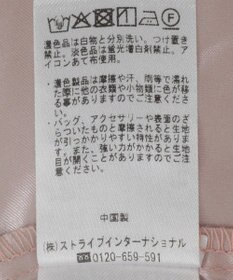 濃色品は白物と分別洗い、つけ置き
禁止。淡色品は蛍光増白剤禁止。ア
イロンあて布使用。
・濃色製品は摩擦や汗、雨等で濡れ
た際に他の衣類や小物類に色が移
る事がありますのでご注意くださ
い。
・バッグ、アクセサリーや表面のざ
らついたものと摩擦されると生地
が引っかかりやすい特性がありま
す。また、強い力がかかると生地
目が開くことがありますのでご注
意ください。
中国製
(株)ストライプインターナショナル
☎0120-659-591